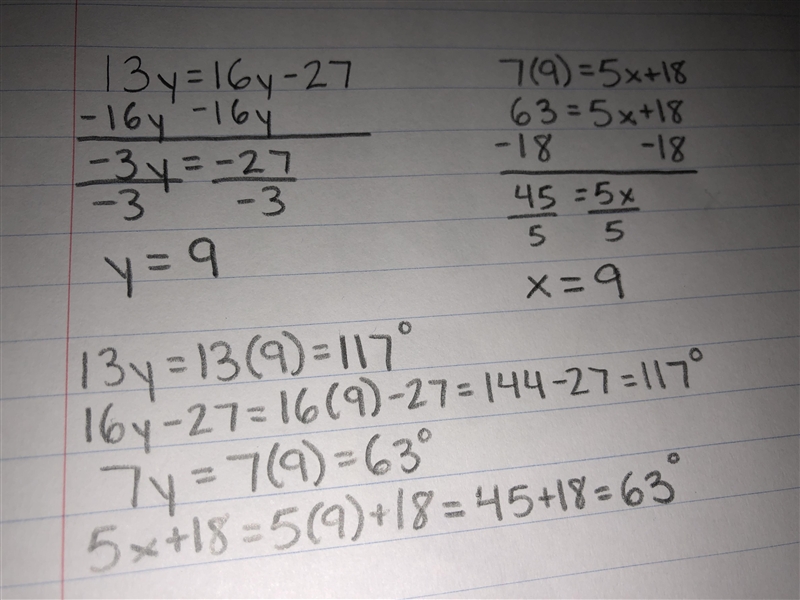 13y=16y-27
-16y -16y
-3y = -27
-3 -3
y = 9
7(9)=5x+18
63=5x+18
-18 -18
45 = 5x
5 5
x = 9
13y=13(9)=117°
16y-27=16(9)-27=144-27=117°
7y=7(9)=63°
5x+18=5(9)+18=45+18=63°